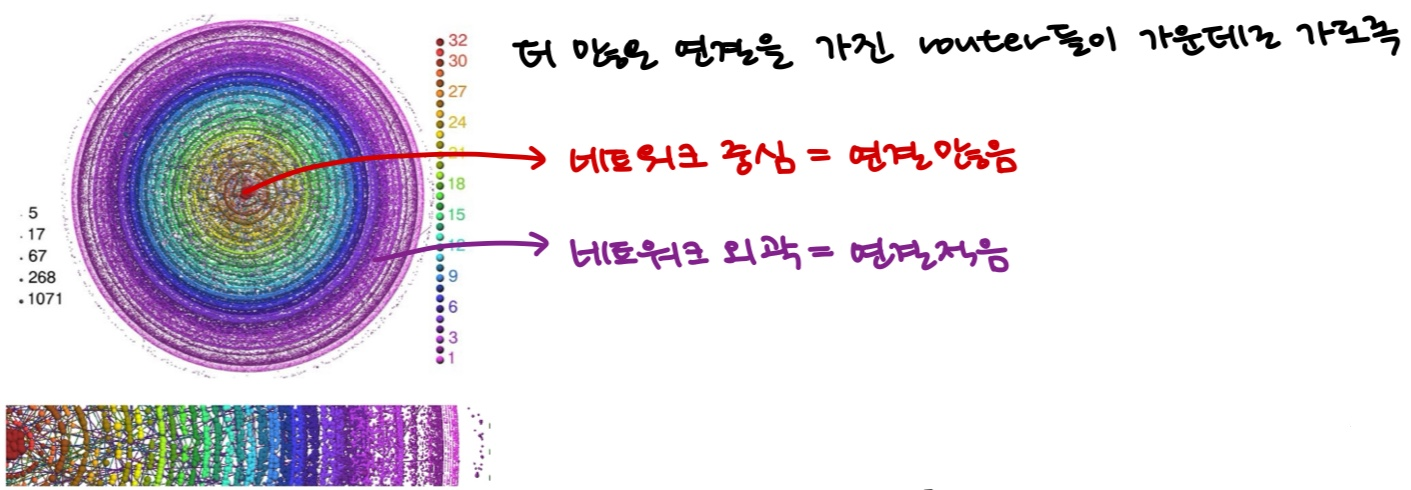 더 많은 연결을 가진 router들이 가운데로 가도록
네트워크 중심 = 연결많음
네트워크 외곽 = 연결적음
5
17
67
268
1071
32
30
27
24
21
18
15
12
9
6
3
1